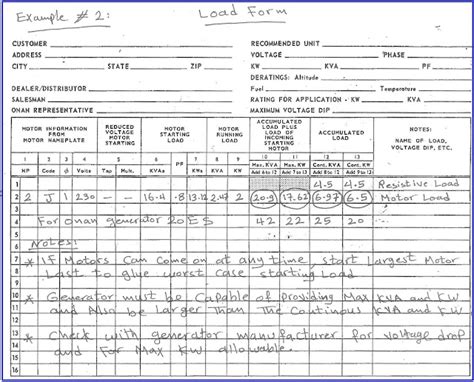 Example # 2:
Load Form
CUSTOMER
ADDRESS
CITY STATE ZIP
DEALER/DISTRIBUTOR
SALESMAN
ONAN REPRESENTATIVE
RECOMMENDED UNIT
VOLTAGE PHASE
KW KVA PF
DERATINGS: Altitude
Fuel Temperature
RATING FOR APPLICATION - KW KVA
MAXIMUM VOLTAGE DIP
MOTOR INFORMATION FROM MOTOR NAMEPLATE
REDUCED VOLTAGE MOTOR STARTING
MOTOR STARTING LOAD
PF
MOTOR RUNNING LOAD
ACCUMULATED LOAD PLUS LOAD OF INCOMING STARTING MOTOR
ACCUMULATED LOAD
NOTES:
NAME OF LOAD, VOLTAGE DIP, ETC.
1 2 3 4 5 6 7 8 9 10 11 12 13
HP Code ϕ Volts Tap Mult. KVAs KWs KVA KW
Max. KVA Max. KW Cont. KVA Cont. KW
Add 6 to 12 Add 7 to 13 Add 8 to 12 Add 9 to 13
1 4.5 4.5 Resistive Load
2 2 J 1 230 — — 16.4 .8 13.12 2.47 2 20.9 17.62 6.97 6.5 Motor Load
3
4 For onan generator 20ES 42 22 25 20
5
6 Notes:
7 * IF Motors Can come on at any time, start Largest Motor
8 Last to give worst case starting Load
9
10 * Generator must be Capable of providing Max KVA and KW
11 and Also be larger Than The Continous KVA and KW
12
13 * Check with generator manufacturer for voltage drop
14 and For Max KW allowable.
15
16